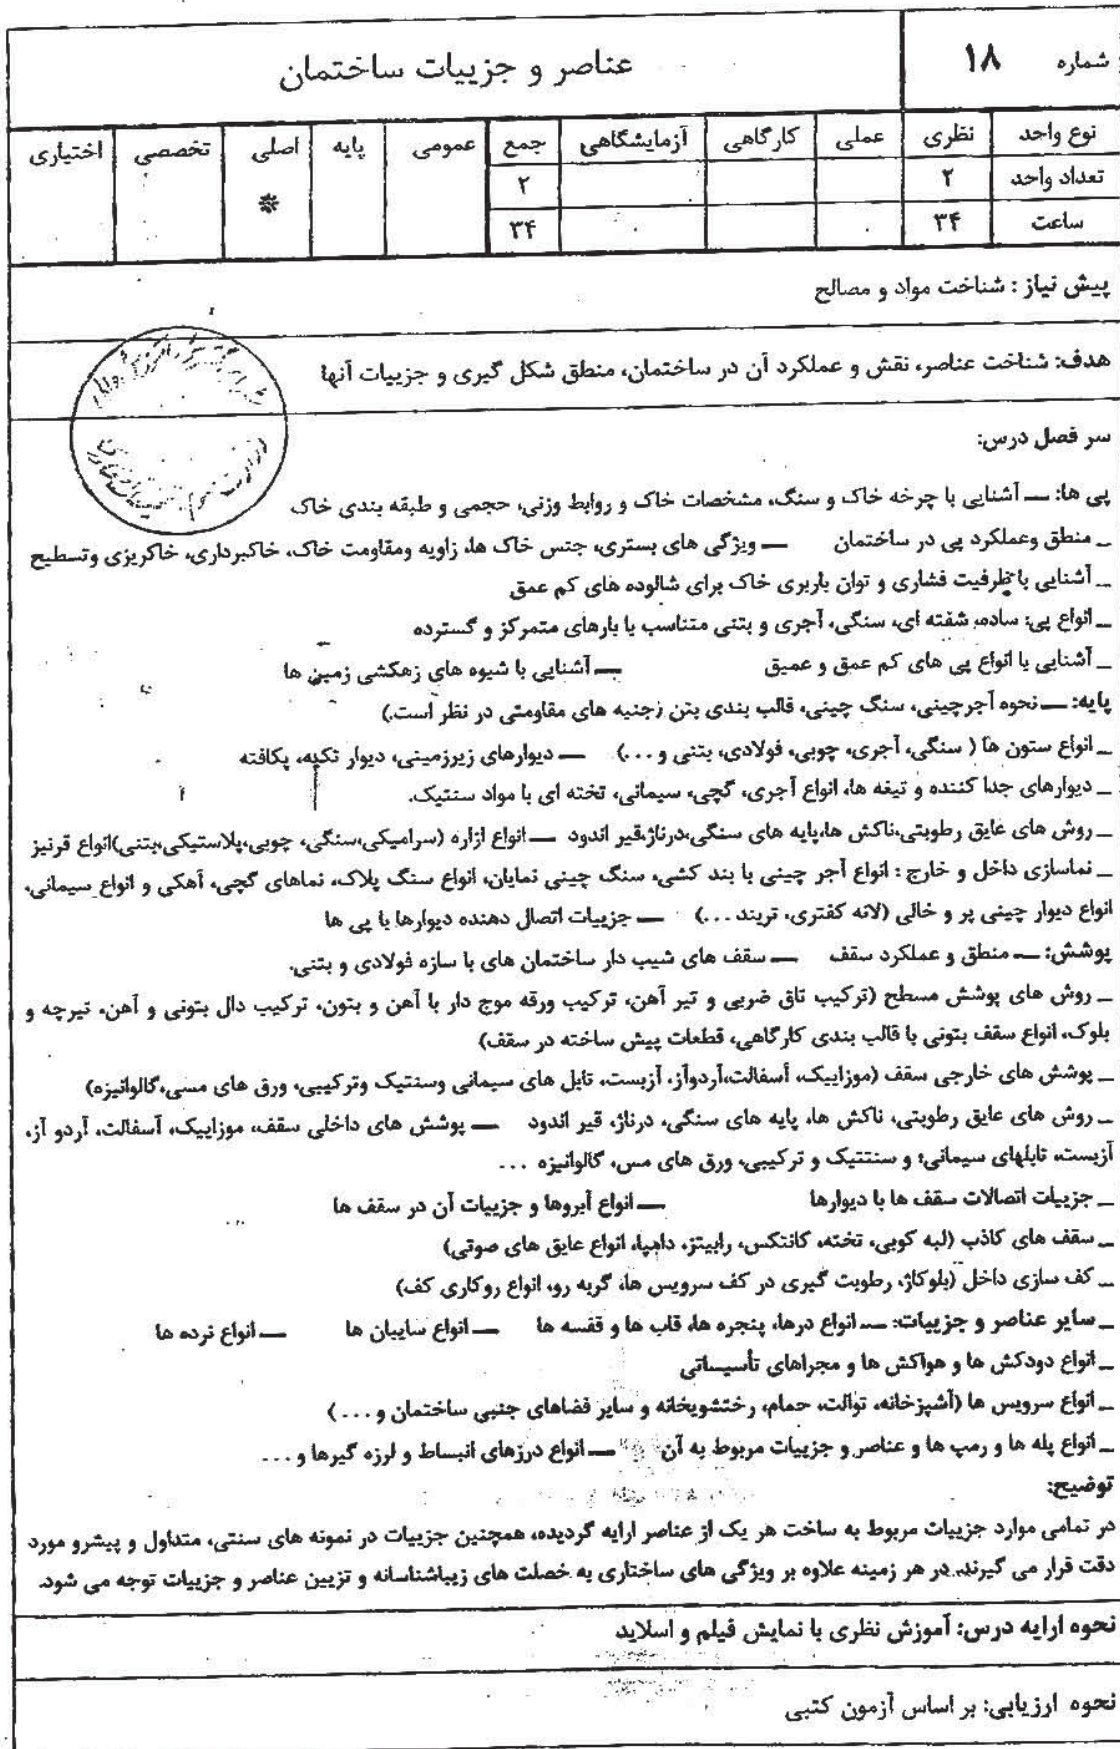 شماره ۱۸ عناصر و جزییات ساختمان
نوع واحد نظری عملی کارگاهی آزمایشگاهی جمع عمومی پایه اصلی تخصصی اختیاری
تعداد واحد ۲ ۲ *
ساعت ۳۴ ۳۴
پیش نیاز : شناخت مواد و مصالح
هدف: شناخت عناصر، نقش و عملکرد آن در ساختمان، منطق شکل گیری و جزییات آنها
سر فصل درس:
پی ها: ــ آشنایی با چرخه خاک و سنگ، مشخصات خاک و روابط وزنی، حجمی و طبقه بندی خاک
ــ منطق وعملکرد پی در ساختمان ــ ویژگی های بستری، جنس خاک ها، زاویه ومقاومت خاک، خاکبرداری، خاکریزی وتسطیح
ــ آشنایی با ظرفیت فشاری و توان باربری خاک برای شالوده های کم عمق
ــ انواع پی: ساده، شفته ای، سنگی، آجری و بتنی متناسب با بارهای متمرکز و گسترده
ــ آشنایی با انواع پی های کم عمق و عمیق ــ آشنایی با شیوه های زهکشی زمین ها
پایه: ــ نحوه آجرچینی، سنگ چینی، قالب بندی بتن (جنبه های مقاومتی در نظر است.)
ــ انواع ستون ها ( سنگی، آجری، چوبی، فولادی، بتنی و...) ــ دیوارهای زیرزمینی، دیوار تکیه، پکافته
ــ دیوارهای جدا کننده و تیغه ها، انواع آجری، گچی، سیمانی، تخته ای با مواد سنتیک.
ــ روش های عایق رطوبتی،ناکش ها،پایه های سنگی،درناژ،قیر اندود ــ انواع ازاره (سرامیکی،سنگی، چوبی،پلاستیکی،بتنی)انواع قرنیز
ــ نماسازی داخل و خارج : انواع آجر چینی با بند کشی، سنگ چینی نمایان، انواع سنگ پلاک، نماهای گچی، آهکی و انواع سیمانی،
انواع دیوار چینی پر و خالی (لانه کفتری، تریند ...) ــ جزییات اتصال دهنده دیوارها با پی ها
پوشش: ــ منطق و عملکرد سقف ــ سقف های شیب دار ساختمان های با سازه فولادی و بتنی.
ــ روش های پوشش مسطح (ترکیب تاق ضربی و تیر آهن، ترکیب ورقه موج دار با آهن و بتون، ترکیب دال بتونی و آهن، تیرچه و
بلوک، انواع سقف بتونی با قالب بندی کارگاهی، قطعات پیش ساخته در سقف)
ــ پوشش های خارجی سقف (موزاییک، آسفالت،آردوآز، آزبست، تایل های سیمانی وسنتیک وترکیبی، ورق های مسی،گالوانیزه)
ــ روش های عایق رطوبتی، ناکش ها، پایه های سنگی، درناژ، قیر اندود ــ پوشش های داخلی سقف، موزاییک، آسفالت، آردو آز،
آزبست، تایلهای سیمانی؛ و سنتتیک و ترکیبی، ورق های مس، گالوانیزه ...
ــ جزییات اتصالات سقف ها با دیوارها ــ انواع آبروها و جزییات آن در سقف ها
ــ سقف های کاذب (لبه کوبی، تخته، کانتکس، رابیتز، دامپا، انواع عایق های صوتی)
ــ کف سازی داخل (بلوکاژ، رطوبت گیری در کف سرویس ها، گربه رو، انواع روکاری کف)
ــ سایر عناصر و جزییات: ــ انواع درها، پنجره ها، قاب ها و قفسه ها ــ انواع سایبان ها ــ انواع نرده ها
ــ انواع دودکش ها و هواکش ها و مجراهای تأسیساتی
ــ انواع سرویس ها (آشپزخانه، توالت، حمام، رختشویخانه و سایر فضاهای جنبی ساختمان و...)
ــ انواع پله ها و رمپ ها و عناصر و جزییات مربوط به آن ــ انواع درزهای انبساط و لرزه گیرها و...
توضیح:
در تمامی موارد جزییات مربوط به ساخت هر یک از عناصر ارایه گردیده، همچنین جزییات در نمونه های سنتی، متداول و پیشرو مورد
دقت قرار می گیرند. در هر زمینه علاوه بر ویژگی های ساختاری به خصلت های زیباشناسانه و تزیین عناصر و جزییات توجه می شود.
نحوه ارایه درس: آموزش نظری با نمایش فیلم و اسلاید
نحوه ارزیابی: بر اساس آزمون کتبی